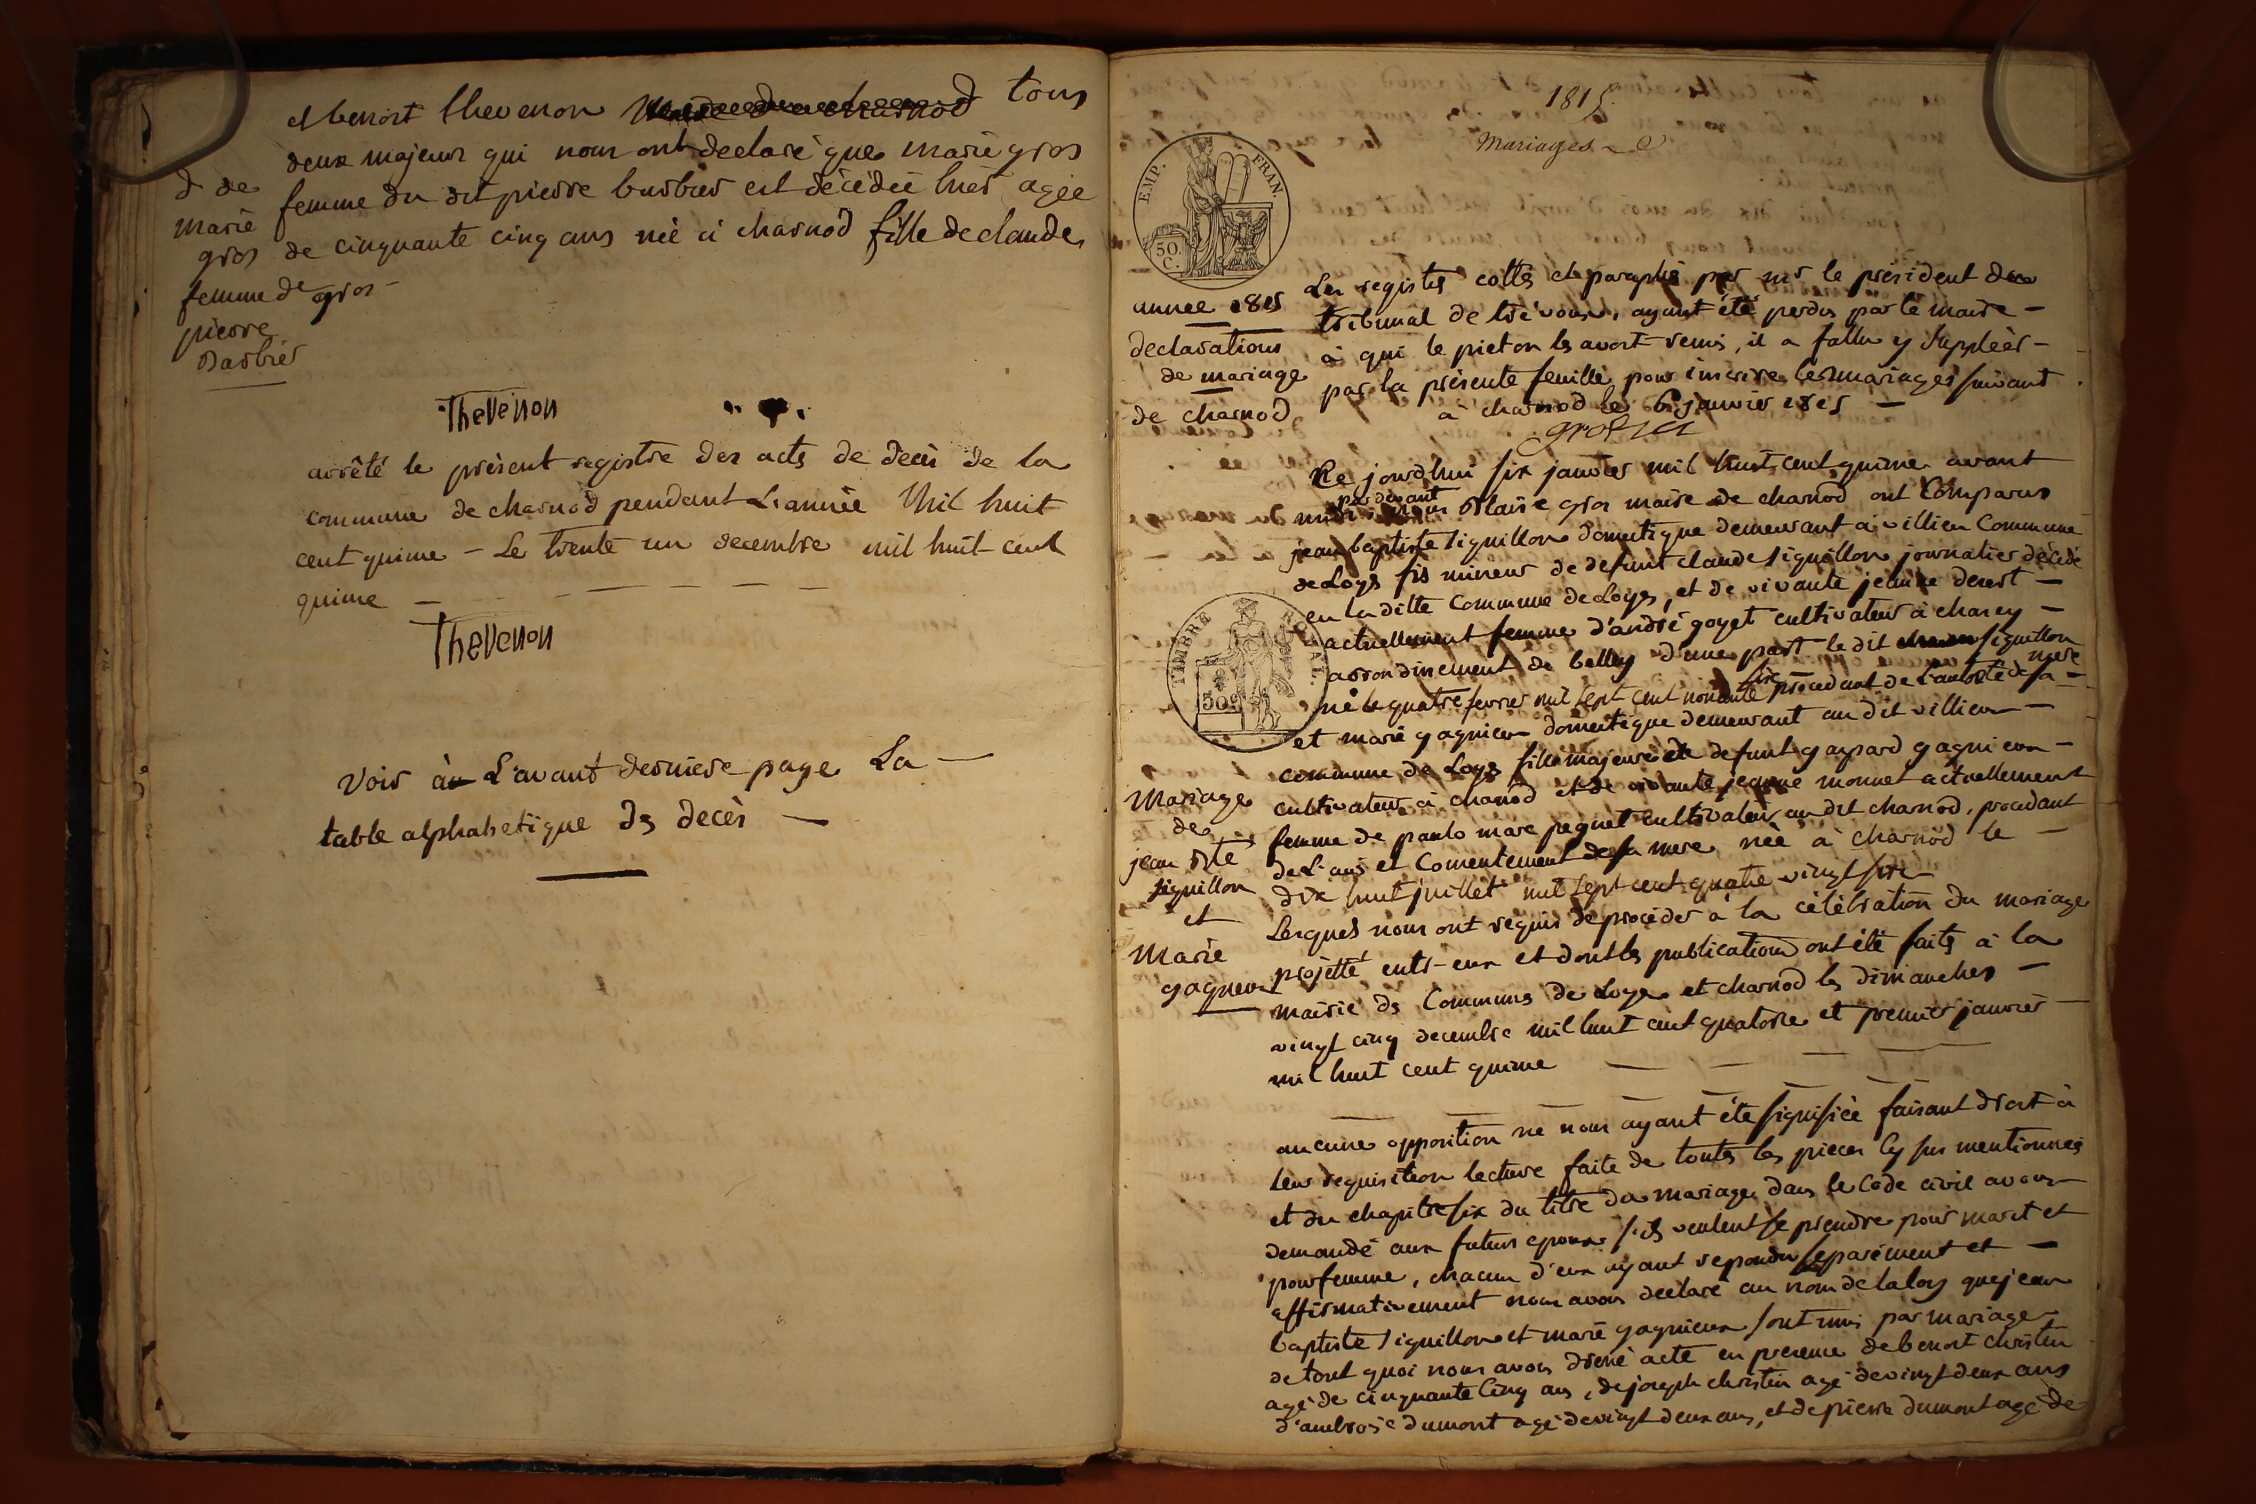 et benoit thevenon tous
deux majeurs qui nous ont declaré que marie gros
femme du dit pierre barbier est décédée hier agée
de cinquante cinq ans née à charnod fille de claude
gros -
d de
marie
gros
femme de
pierre
Barbier
Thevenon
arrêté le présent registre des acts de décès de la
commune de charnod pendant L'année Mil huit
cent quinse - Le trente un decembre mil huit cent
quinse
Thevenon
Voir à L'avant derniere page La -
table alphabetique ds decès -
1815.
Mariages
EMP. FRAN.
50. C.
annee 1815
declarations
de mariage
de charnod
Les registes cottés et paraphé par mr le président du
tribunal de trévoux, ayant été perdus par le maire -
à qui le pieton les avoit remis, il a fallu y suppléer -
par la présente feuille pour inscrire les mariages suivant
à charnod le 6 janvier 1815 -
TIMBRE ROYAL
50c
Ce jourdhui six janvier mil huit cent quinse avant
midi pardevant nous Blaise gros maire de charnod ont Comparus
jean baptiste siguillon domestique demeurant à villieu Commune
de Loys fis mineur de defunt claude siguillon journalier décédé
en la ditte Commune de Loyes, et de vivante jeanne derest -
actuellement femme d'andré goyet cultivateur à charey -
arrondissement de belley d'une part le dit siguillon
né le quatre fevrier mil sept cent nonante six procedant de L'autorité de sa mere
et marie gagnieux domestique demeurant au dit villieu -
commune de Loys fille majeure de defunt gaspard gagnieux -
cultivateur à charnod et de vivante jeanne monnet actuellement
femme de paul marc peguet cultivateur au dit charnod, procedant
de L'avis et Consentement de sa mere née à charnod le -
dix huit juillet mil sept cent quatre vingt sixe
Lesquels nous ont requis de procéder à la célébration du mariage
projetté entr-eux et dont les publications ont été faits à la
mairie ds Communs de Loyes et charnod les dimanches -
vingt cinq decembre mil huit cent quatorse et premier janvier
mil huit cent quinse
Mariage
de
jean Bte
siguillon
et
Marie
gagneux
aucune opposition ne nous ayant été signifiée faisant droit à
leur requisition lecture faite de toutes les pieces Cy sus mentionnées
et du chapitre six du titre du mariage dans le Code civil avons
demandé aux futurs epoux s'ils veulent se prendre pour marit et
pour femme, chacun d'eux ayant repondu separément et -
affirmativement nous avons declaré au nom de la loy que jean
baptiste siguillon et marie gagnieux sont unis par mariage
de tout quoi nous avons dressé acte en presence de benoit christin
agé de cinquante Cinq ans, de joseph christin agé de vingt deux ans
d'ambroise dumont agé de vingt deux ans, et de pierre dumont agé de